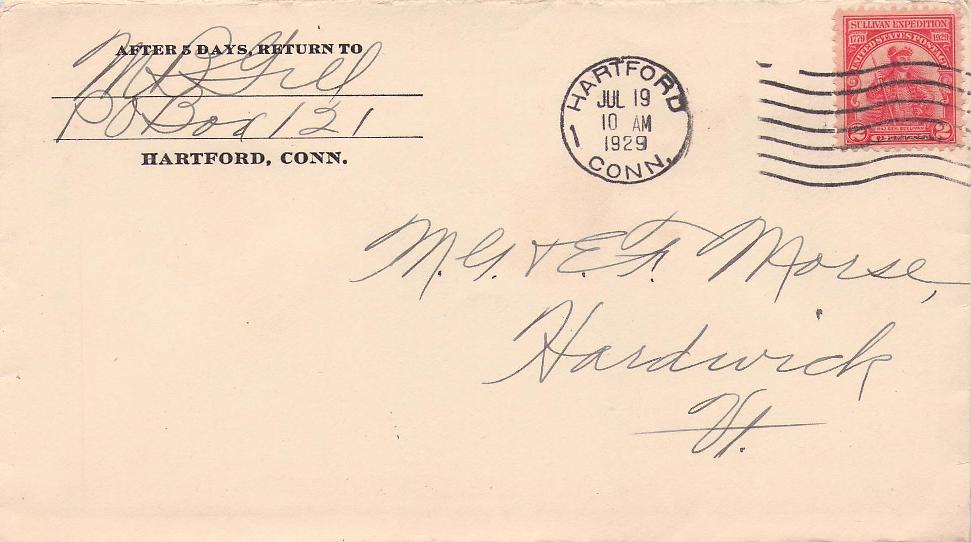 AFTER 5 DAYS, RETURN TO
M B Gill
P O Box 121
HARTFORD, CONN.
HARTFORD
JUL 19
10 AM
1929
CONN.
1
SULLIVAN EXPEDITION
1779 1929
UNITED STATES POSTAGE
MAJ. GEN. SULLIVAN
2 2
M. G. & E. F. Morse,
Hardwick
Vt.